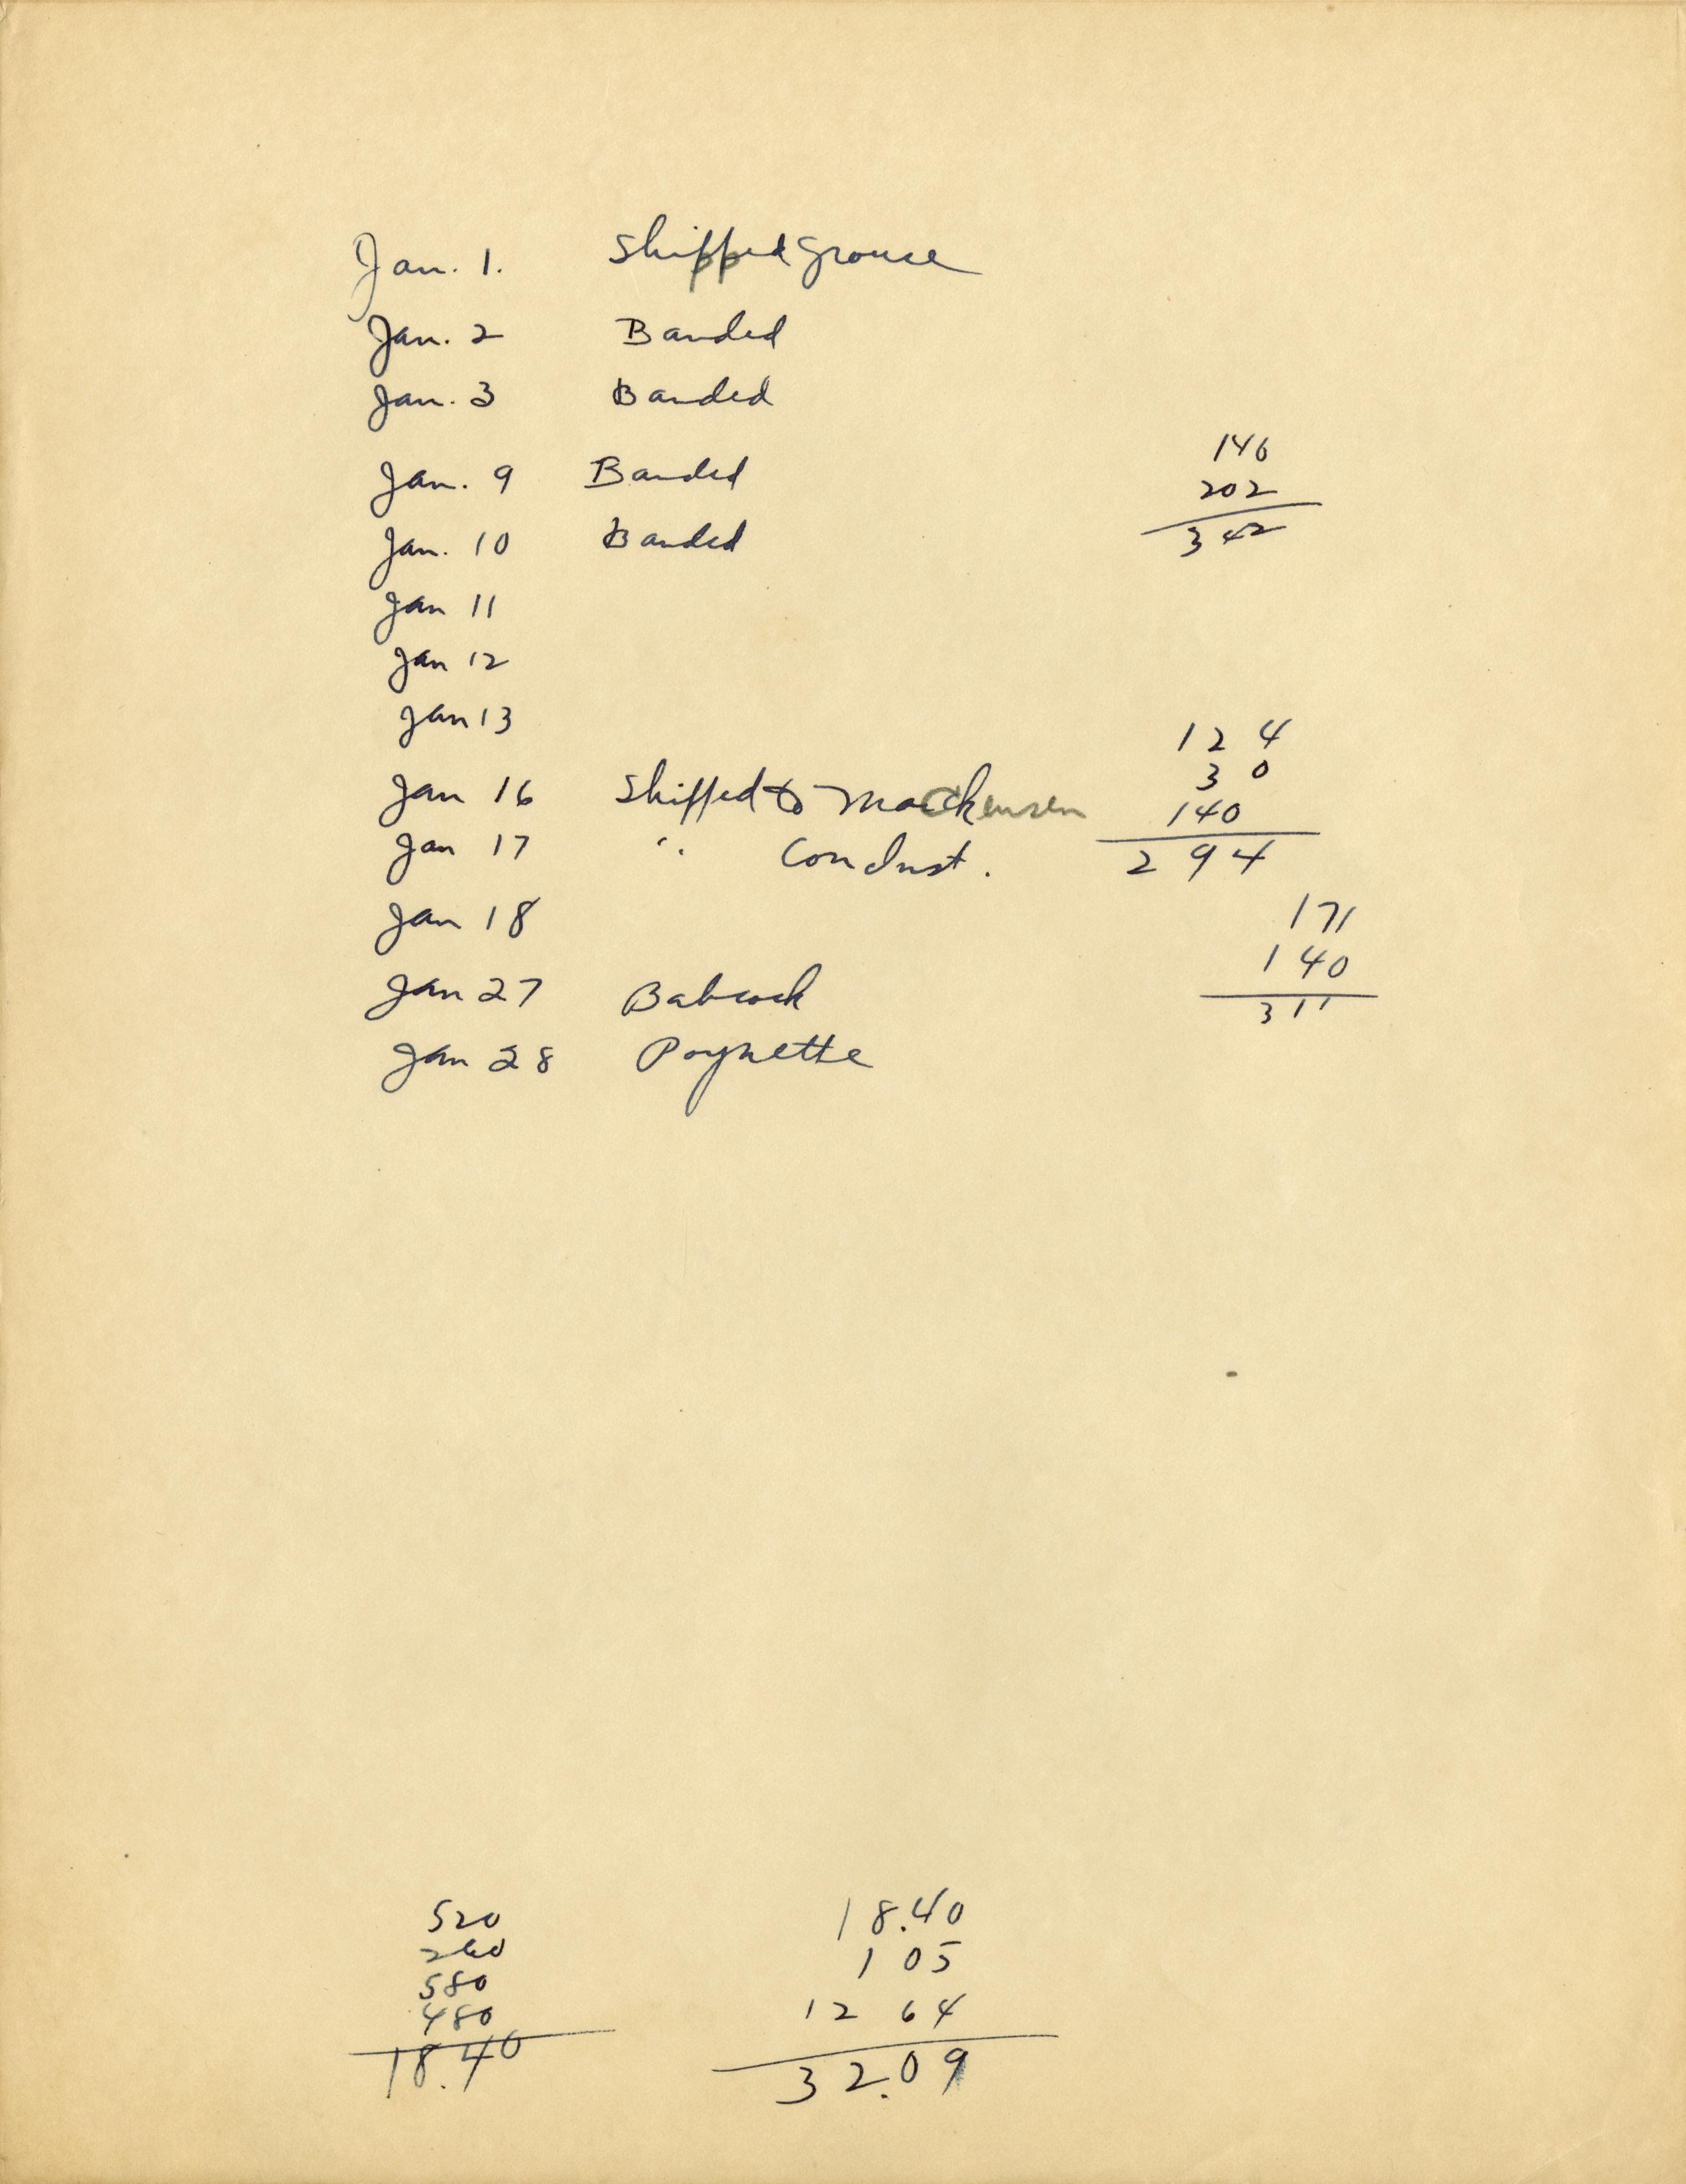 Jan. 1. Shipped Grouse
Jan. 2 Banded
Jan. 3 Banded
Jan. 9 Banded
Jan. 10 Banded
Jan 11
Jan 12
Jan 13
Jan 16 Shipped to Mackensen
Jan 17 " Condust.
Jan 18
Jan 27 Babcock
Jan 28 Poynette
140
202
342
124
30
140
294
171
140
311
520
260
580
480
18.40
18.40
1 05
12 64
32.09